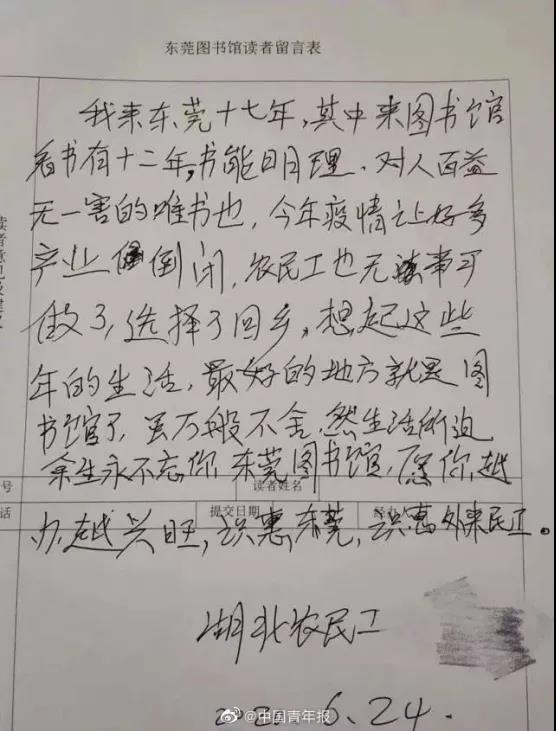 东莞图书馆读者留言表
我来东莞十七年，其中来图书馆
看书有十二年，书能明理、对人百益
无一害的唯书也，今年疫情让好多
产业倒闭，农民工也无事可
做了，选择了回乡。想起这些
年的生活，最好的地方就是图
书馆了，虽万般不舍，然生活所迫
余生永不忘你，东莞图书馆，愿你越
号
读者姓名
话
提交日期
经办人
办越兴旺，识惠东莞，识惠外来民工。
湖北农民工
@中国青年报
6.24.